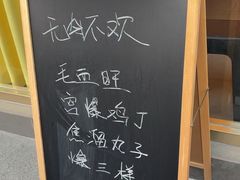 无肉不欢
毛血旺
宫爆鸡丁
焦溜丸子
爆三样